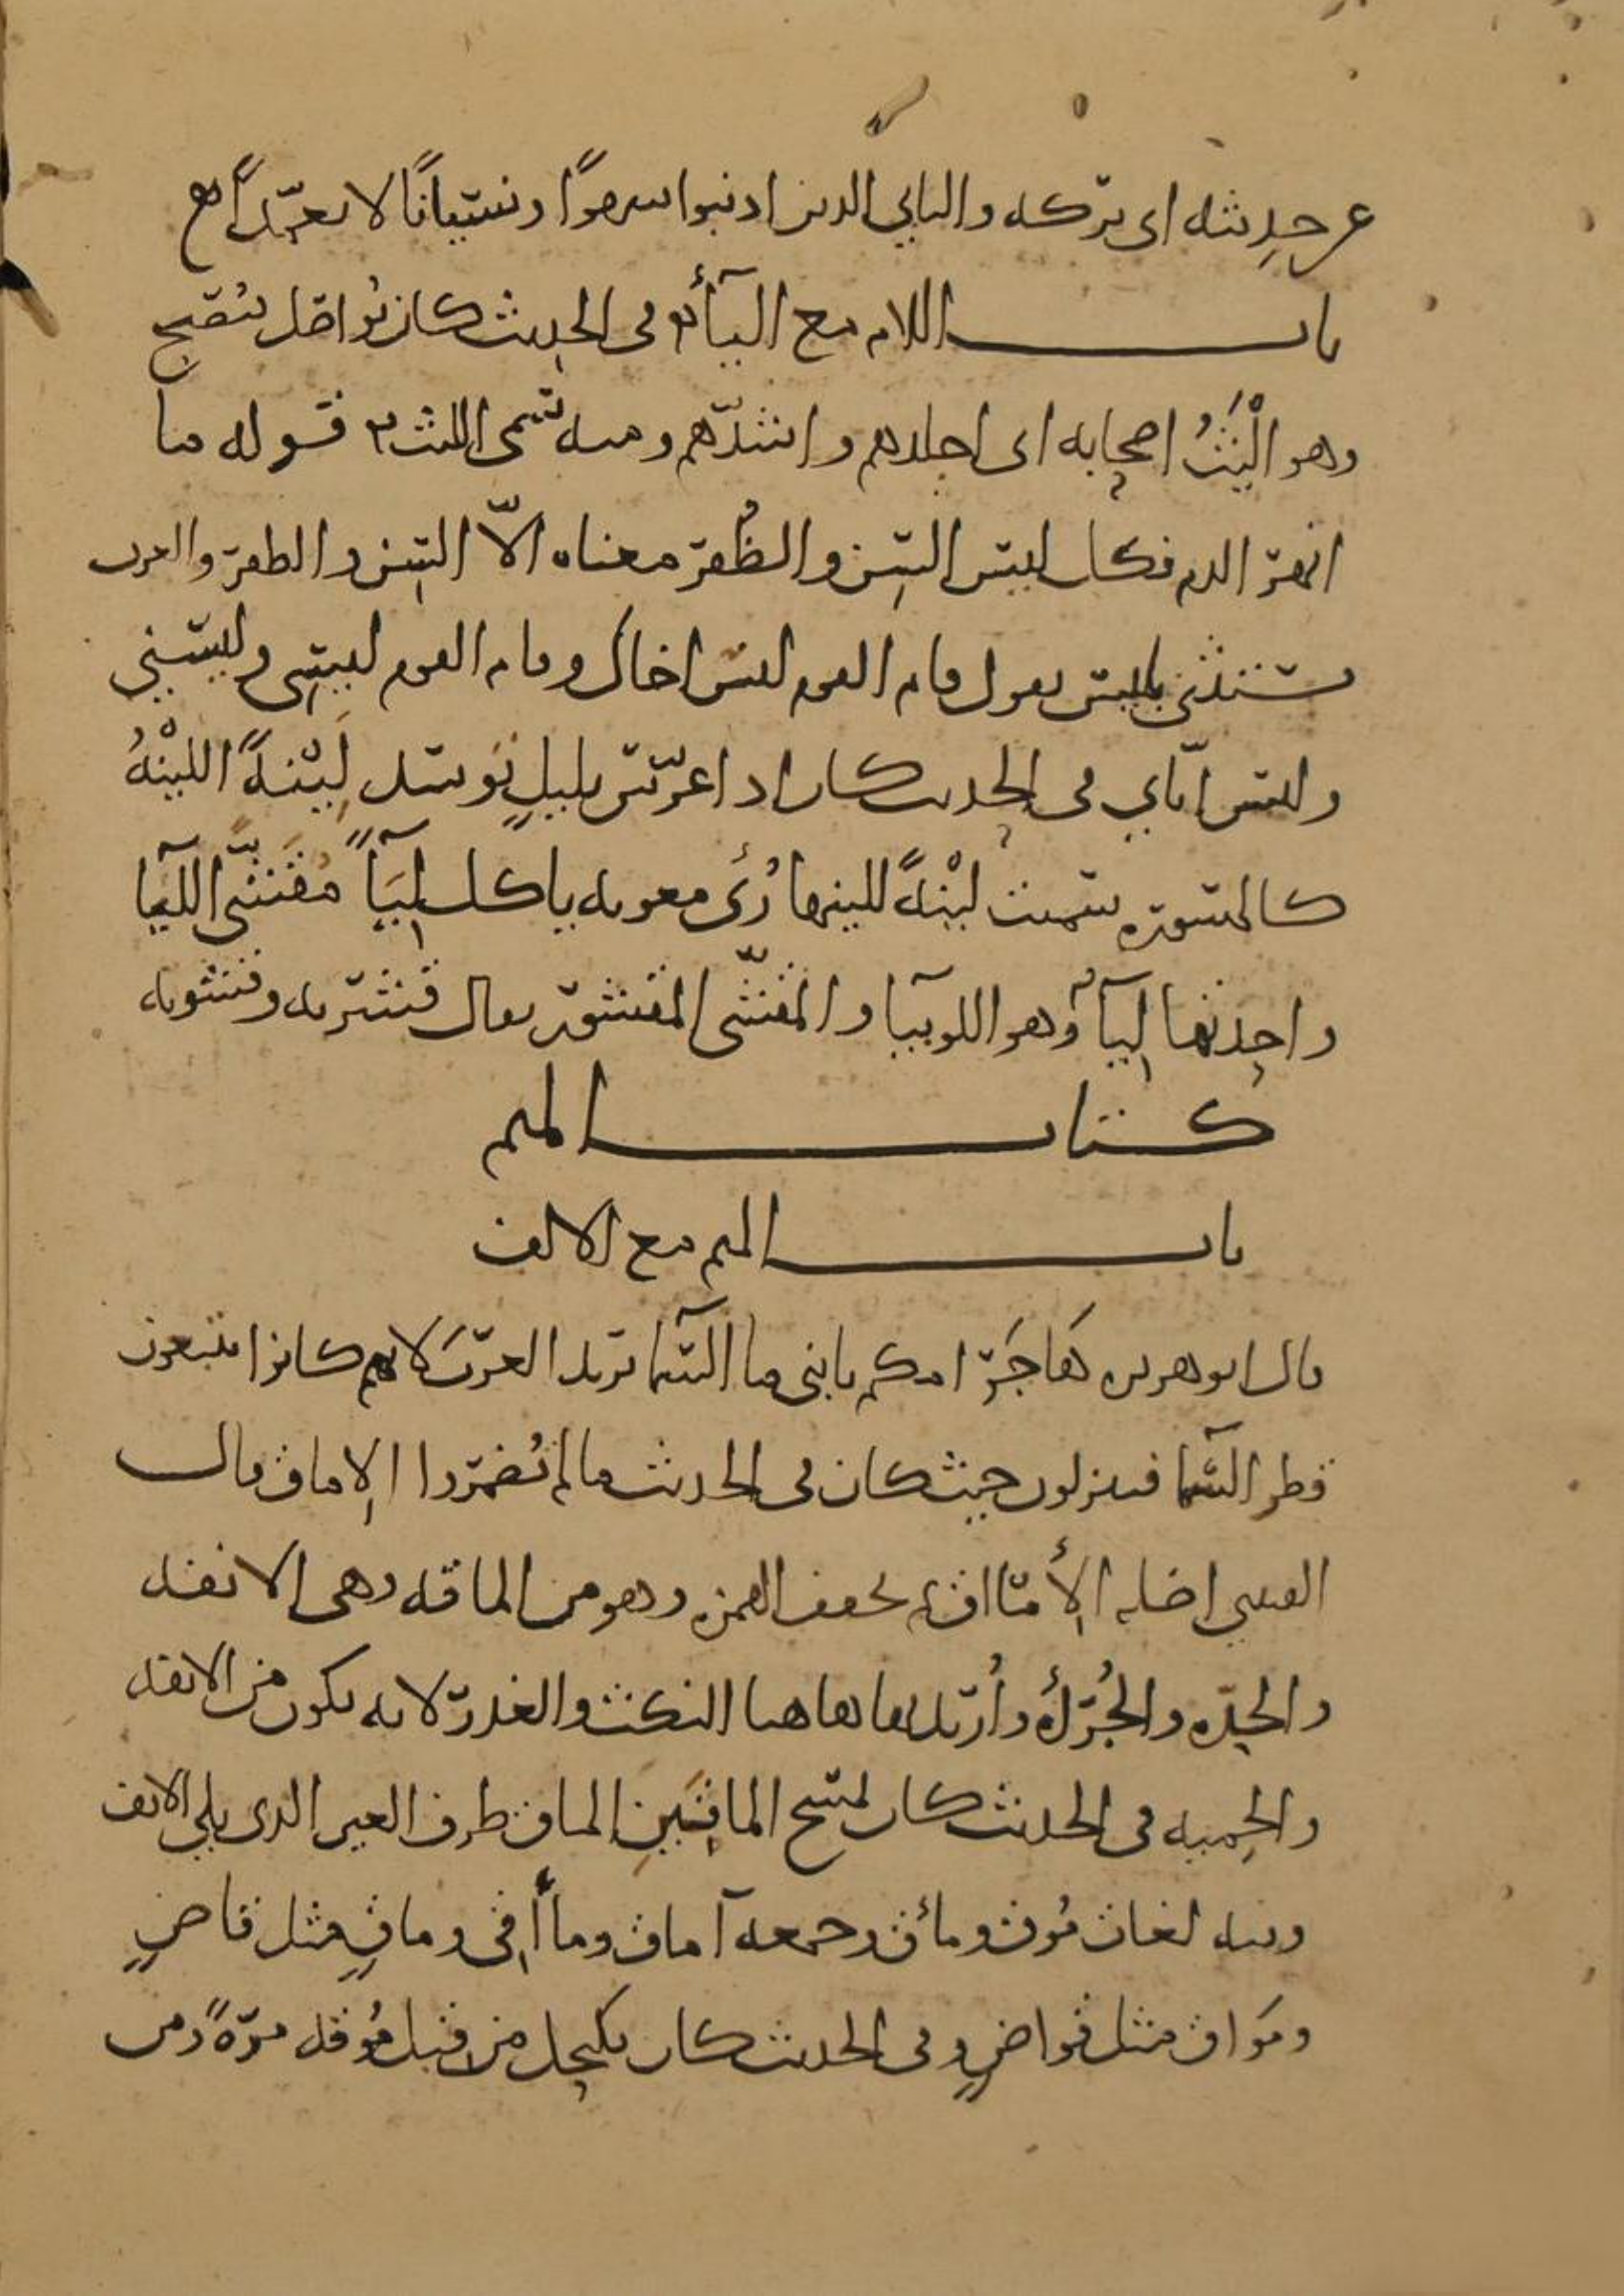 عن حديثه اي تركه والثاني الذين اذنبوا سهوًا ونسيانًا لا تعمّدًا
باب اللام مع الياء في الحديث كان يُواصل فيُصبح
وهو الْيَثُ اصحابه اى اجلدهم واشدّهم ومنه سُمّى الليث قوله ما
انهر الدم فكل ليس السِن والظُفر معناه الّا السِن والظفر والعرب
تستثنى بليس يقول قام القوم ليس اخاك وقام القوم ليسى وليسني
وليس ايّاي فى الحديث كان اذا عرّس بليلٍ توسّد لِيْنةً اللينْةُ
كالمسورة سميت ليْنةً للينها رُئى معوية ياكل لِيَآً مُقَشّىً اللِيَا
واحدتها لِيَآءَة وهو اللوبيا والمقشّى المقشور يقال قشرته وقشوته
كتاب الميم
باب الميم مع الالف
قال ابو هريرة هَاجَرُ امكم يا بنى ما السّما تريد العربَ لانهم كانوا يتبعون
قطر السّما فينزلون حيث كان فى الحديث ما لم تُضمروا الإماق قال
القتبي اصله الأمْاَاق ثم يخفف الهمزة وهو من الماقة وهى الانفة
والحِدّة والجُرْأة وأُريد بها هاهنا النكث والغدر لانه يكون من الانفة
والحمية فى الحديث كان يمسح الماقِيَينِ الماق طرف العين الذى يلي الانف
وفيه لغات مُوق ومأق وجمعه آماق ومأاقى وماقٍ مثل قاضٍ
ومَواق مثل قواضٍ وفى الحديث كان يكتحل من قبل مُوقه مرّةً ومن